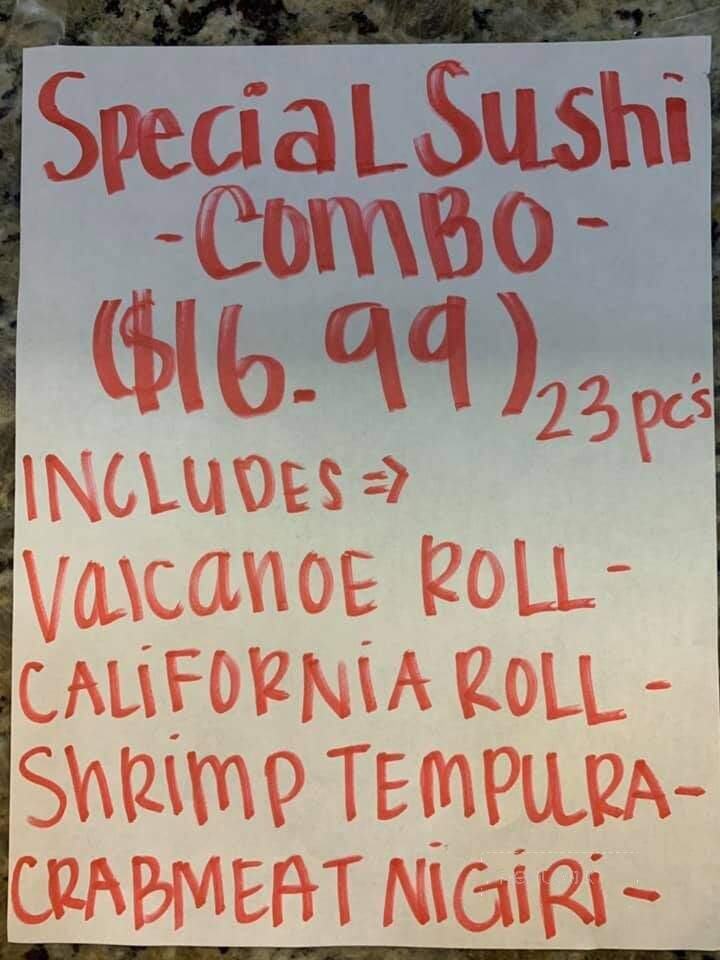 Special Sushi
- Combo -
($16.99)
23 pc's
INCLUDES =>
Valcanoe ROLL -
CALiFORNiA ROLL -
Shrimp TEMPURA -
CRABMEAT NiGiRi -